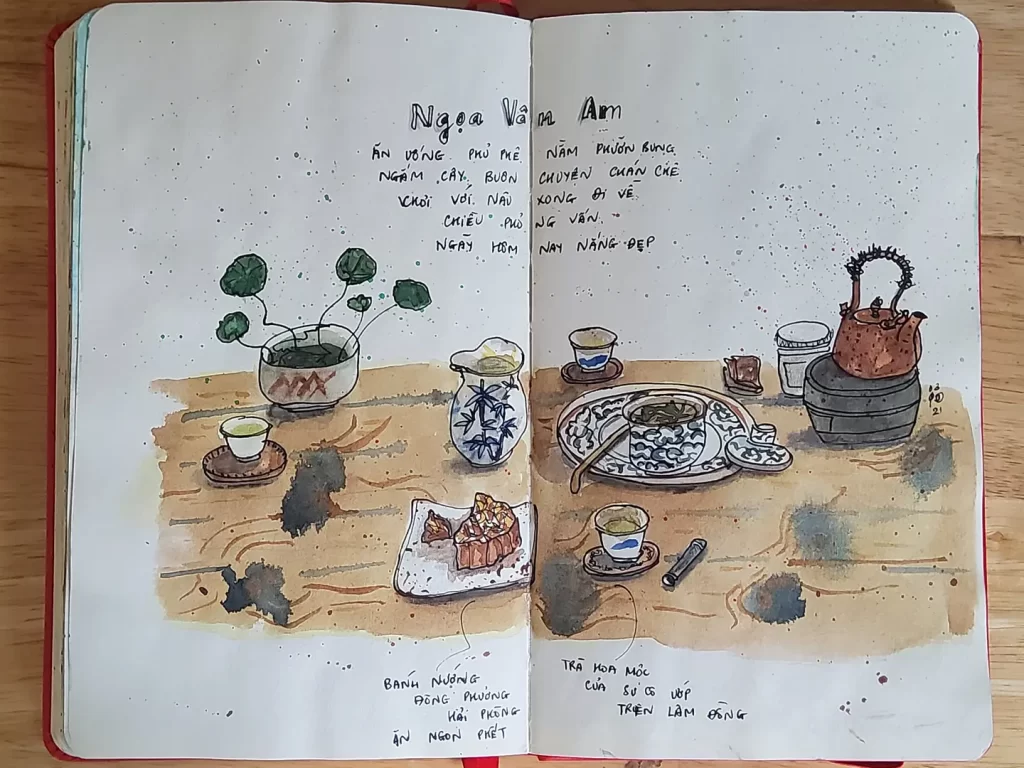 Ngọa Vân Am
ĂN UỐNG PHỦ PHÊ NẰM PHƯỠN BỤNG
NGẮM CÂY BUÔN CHUYỆN CHÁN CHÊ
CHƠI VỚI NÂU XONG ĐI VỀ
CHIỀU PHỎNG VẤN
NGÀY HÔM NAY NẮNG ĐẸP
BÁNH NƯỚNG
ĐÔNG PHƯƠNG
HẢI PHÒNG
ĂN NGON PHẾT
TRÀ HOA MỘC
CỦA SƯ CÔ ƯỚP
TRÊN LÂM ĐỒNG
21